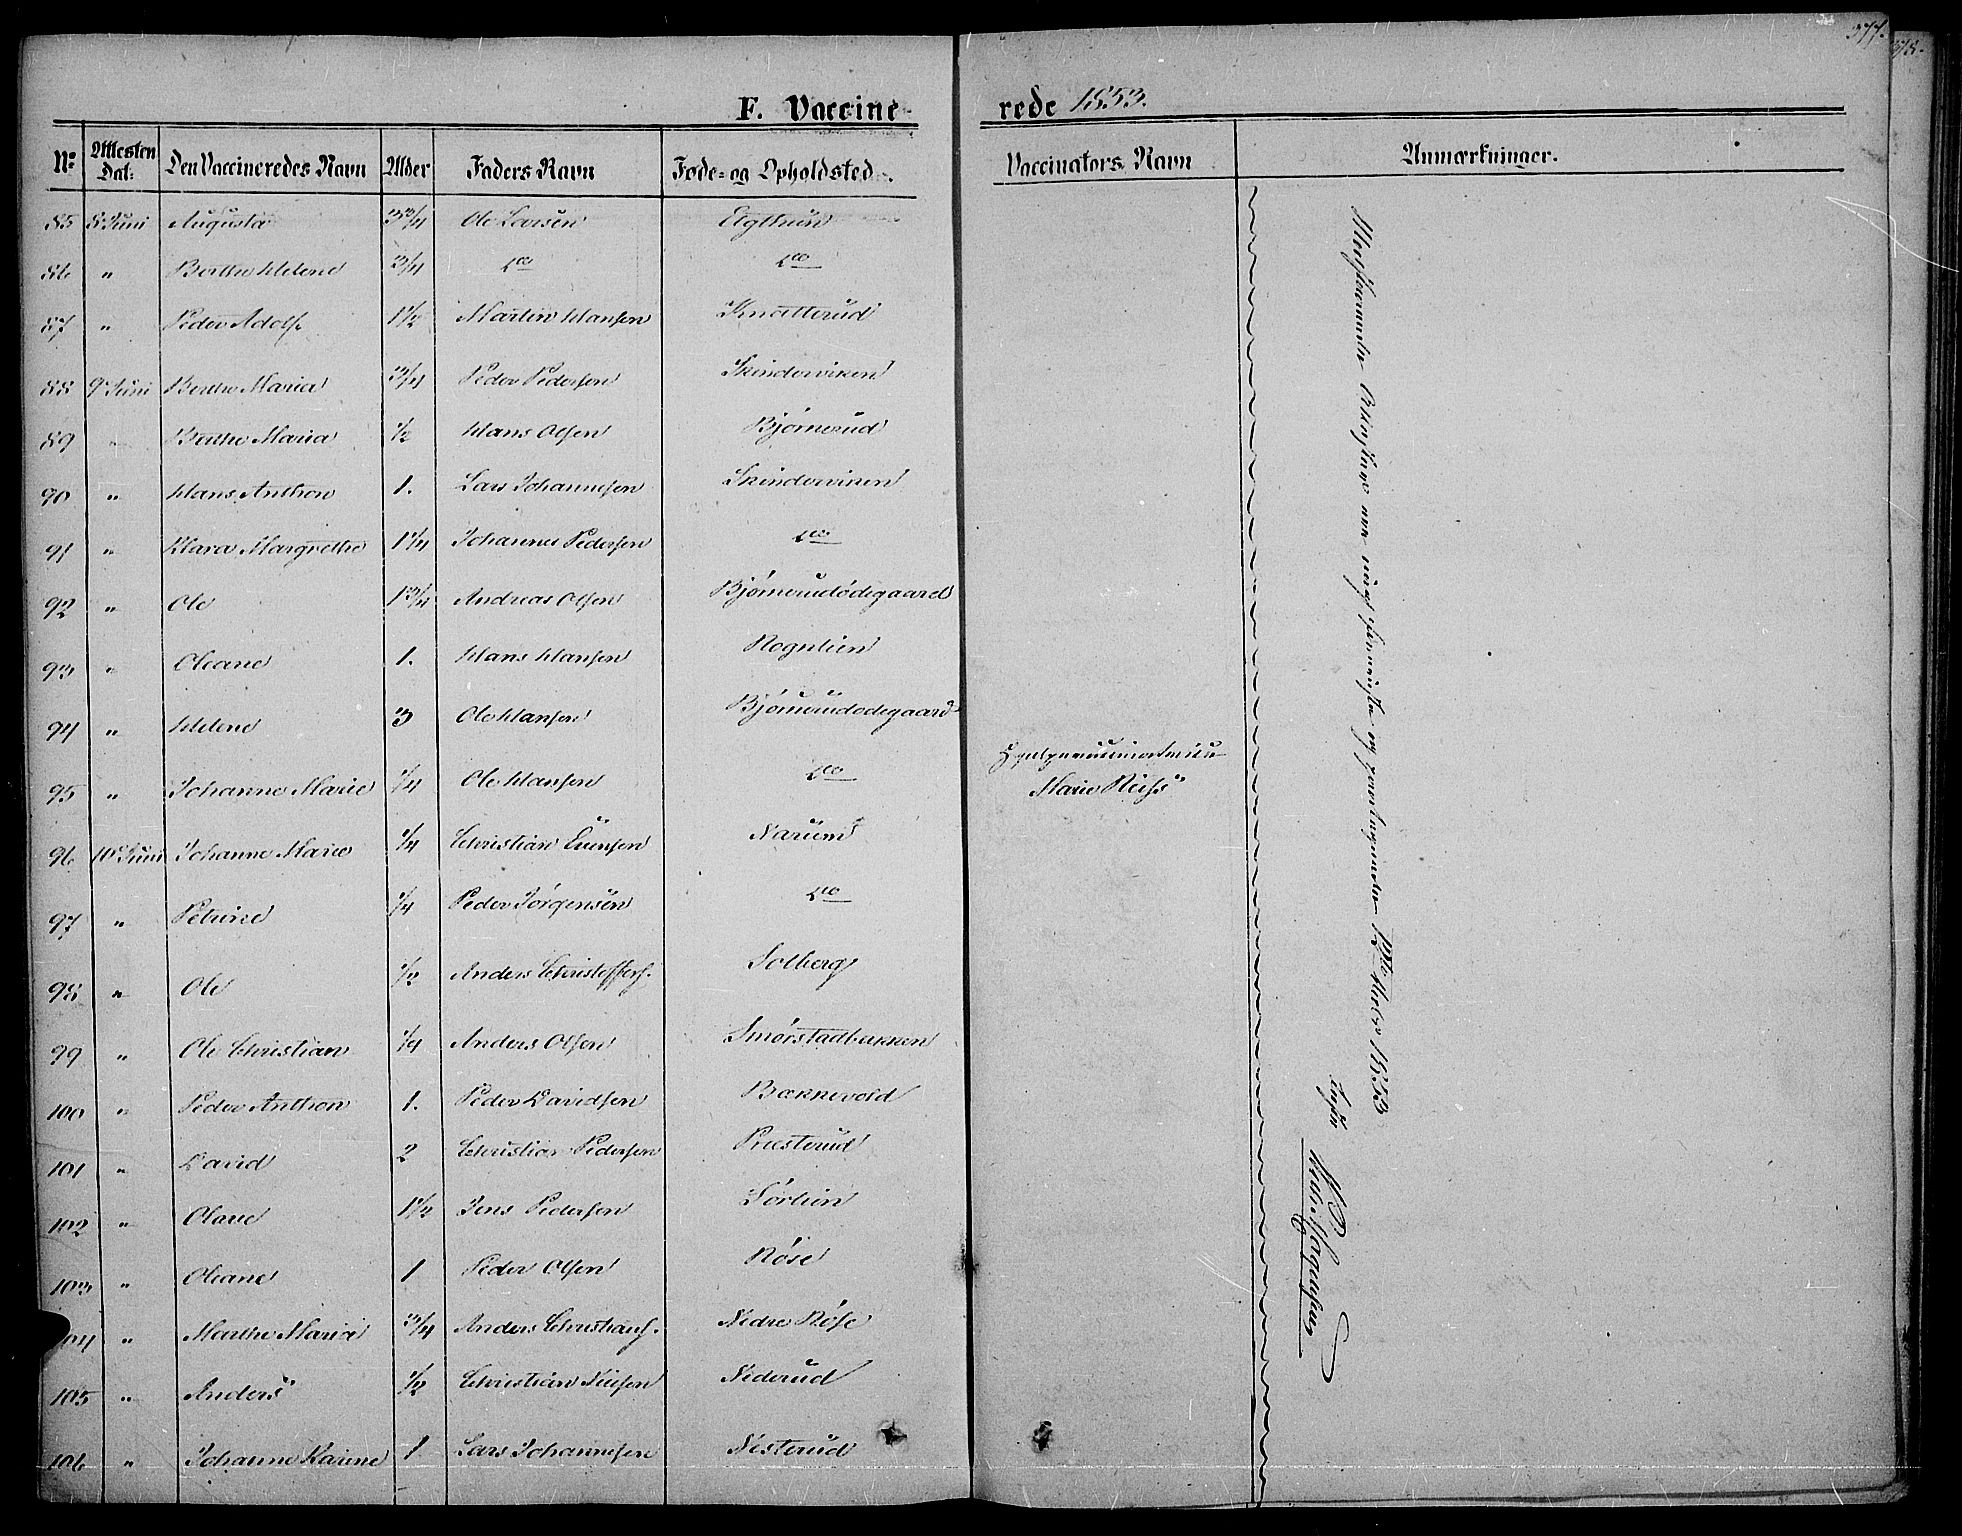 377.
378.
F. Vaccinerede 1853.
Nr. Attesten Dat: Den Vaccineredes Navn Alder Faders Navn Føde- og Opholdsted. Vaccinators Navn Anmærkninger.
85 8 Juni Augusta 3 3/4 Ole Larsen Elgthun
86 " Berthe Helene 3/4 do do
87 " Peder Adolf 1 1/2 Martin Hansen Knatterud
88 9 Juni Berthe Maria 3/4 Peder Pedersen Skinderviken
89 " Berthe Maria 1/2 Hans Olsen Bjørnerud
90 " Hans Anthon 1. Lars Johannesen Skinderviken
91 " Klara Margrethe 1 1/4 Johannes Pedersen do
92 " Ole 1 3/4 Andreas Olsen Bjørnerudødegaard
93 " Oleane 1. Hans Hansen Rognlien
94 " Helene 3 Ole Hansen Bjørnerudødegaard
95 " Johanne Marie 1/4 Ole Hansen do
Marie Reiss
96 10 Juni Johanne Marie 1/4 Christian Evensen Narum
97 " Petrine 1/4 Peder Jørgensen do
98 " Ole 1/2 Anders Christoffers. Solberg
99 " Ole Christian 1/4 Anders Olsen Smørstadbakken
100 " Peder Anthon 1. Peder Davidsen Bækkevold
101 " David 2 Christian Pedersen Præsterud
102 " Olave 1 1/2 Jens Pedersen Sørlien
103 " Oleane 1 Peder Olsen Røse
104 " Marthe Maria 3/4 Anders Christians. Nedre Røse
105 " Anders 1/2 Christian Nielsen Nederud
106 " Johanne Karine 1 Lars Johannesen Nesterud
1853